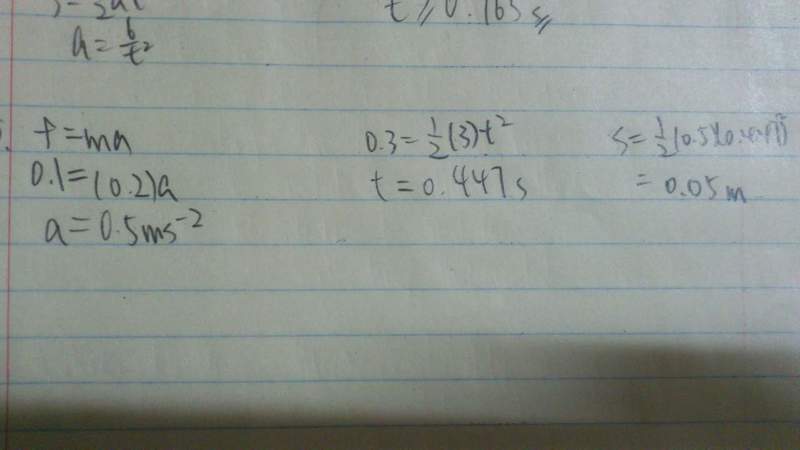 a = 6/t²
t ≥ 0.163 s
f = ma
0.1 = (0.2)a
a = 0.5 ms⁻²
0.3 = 1/2 (3) t²
t = 0.447 s
s = 1/2 (0.5)(0.447)²
= 0.05 m